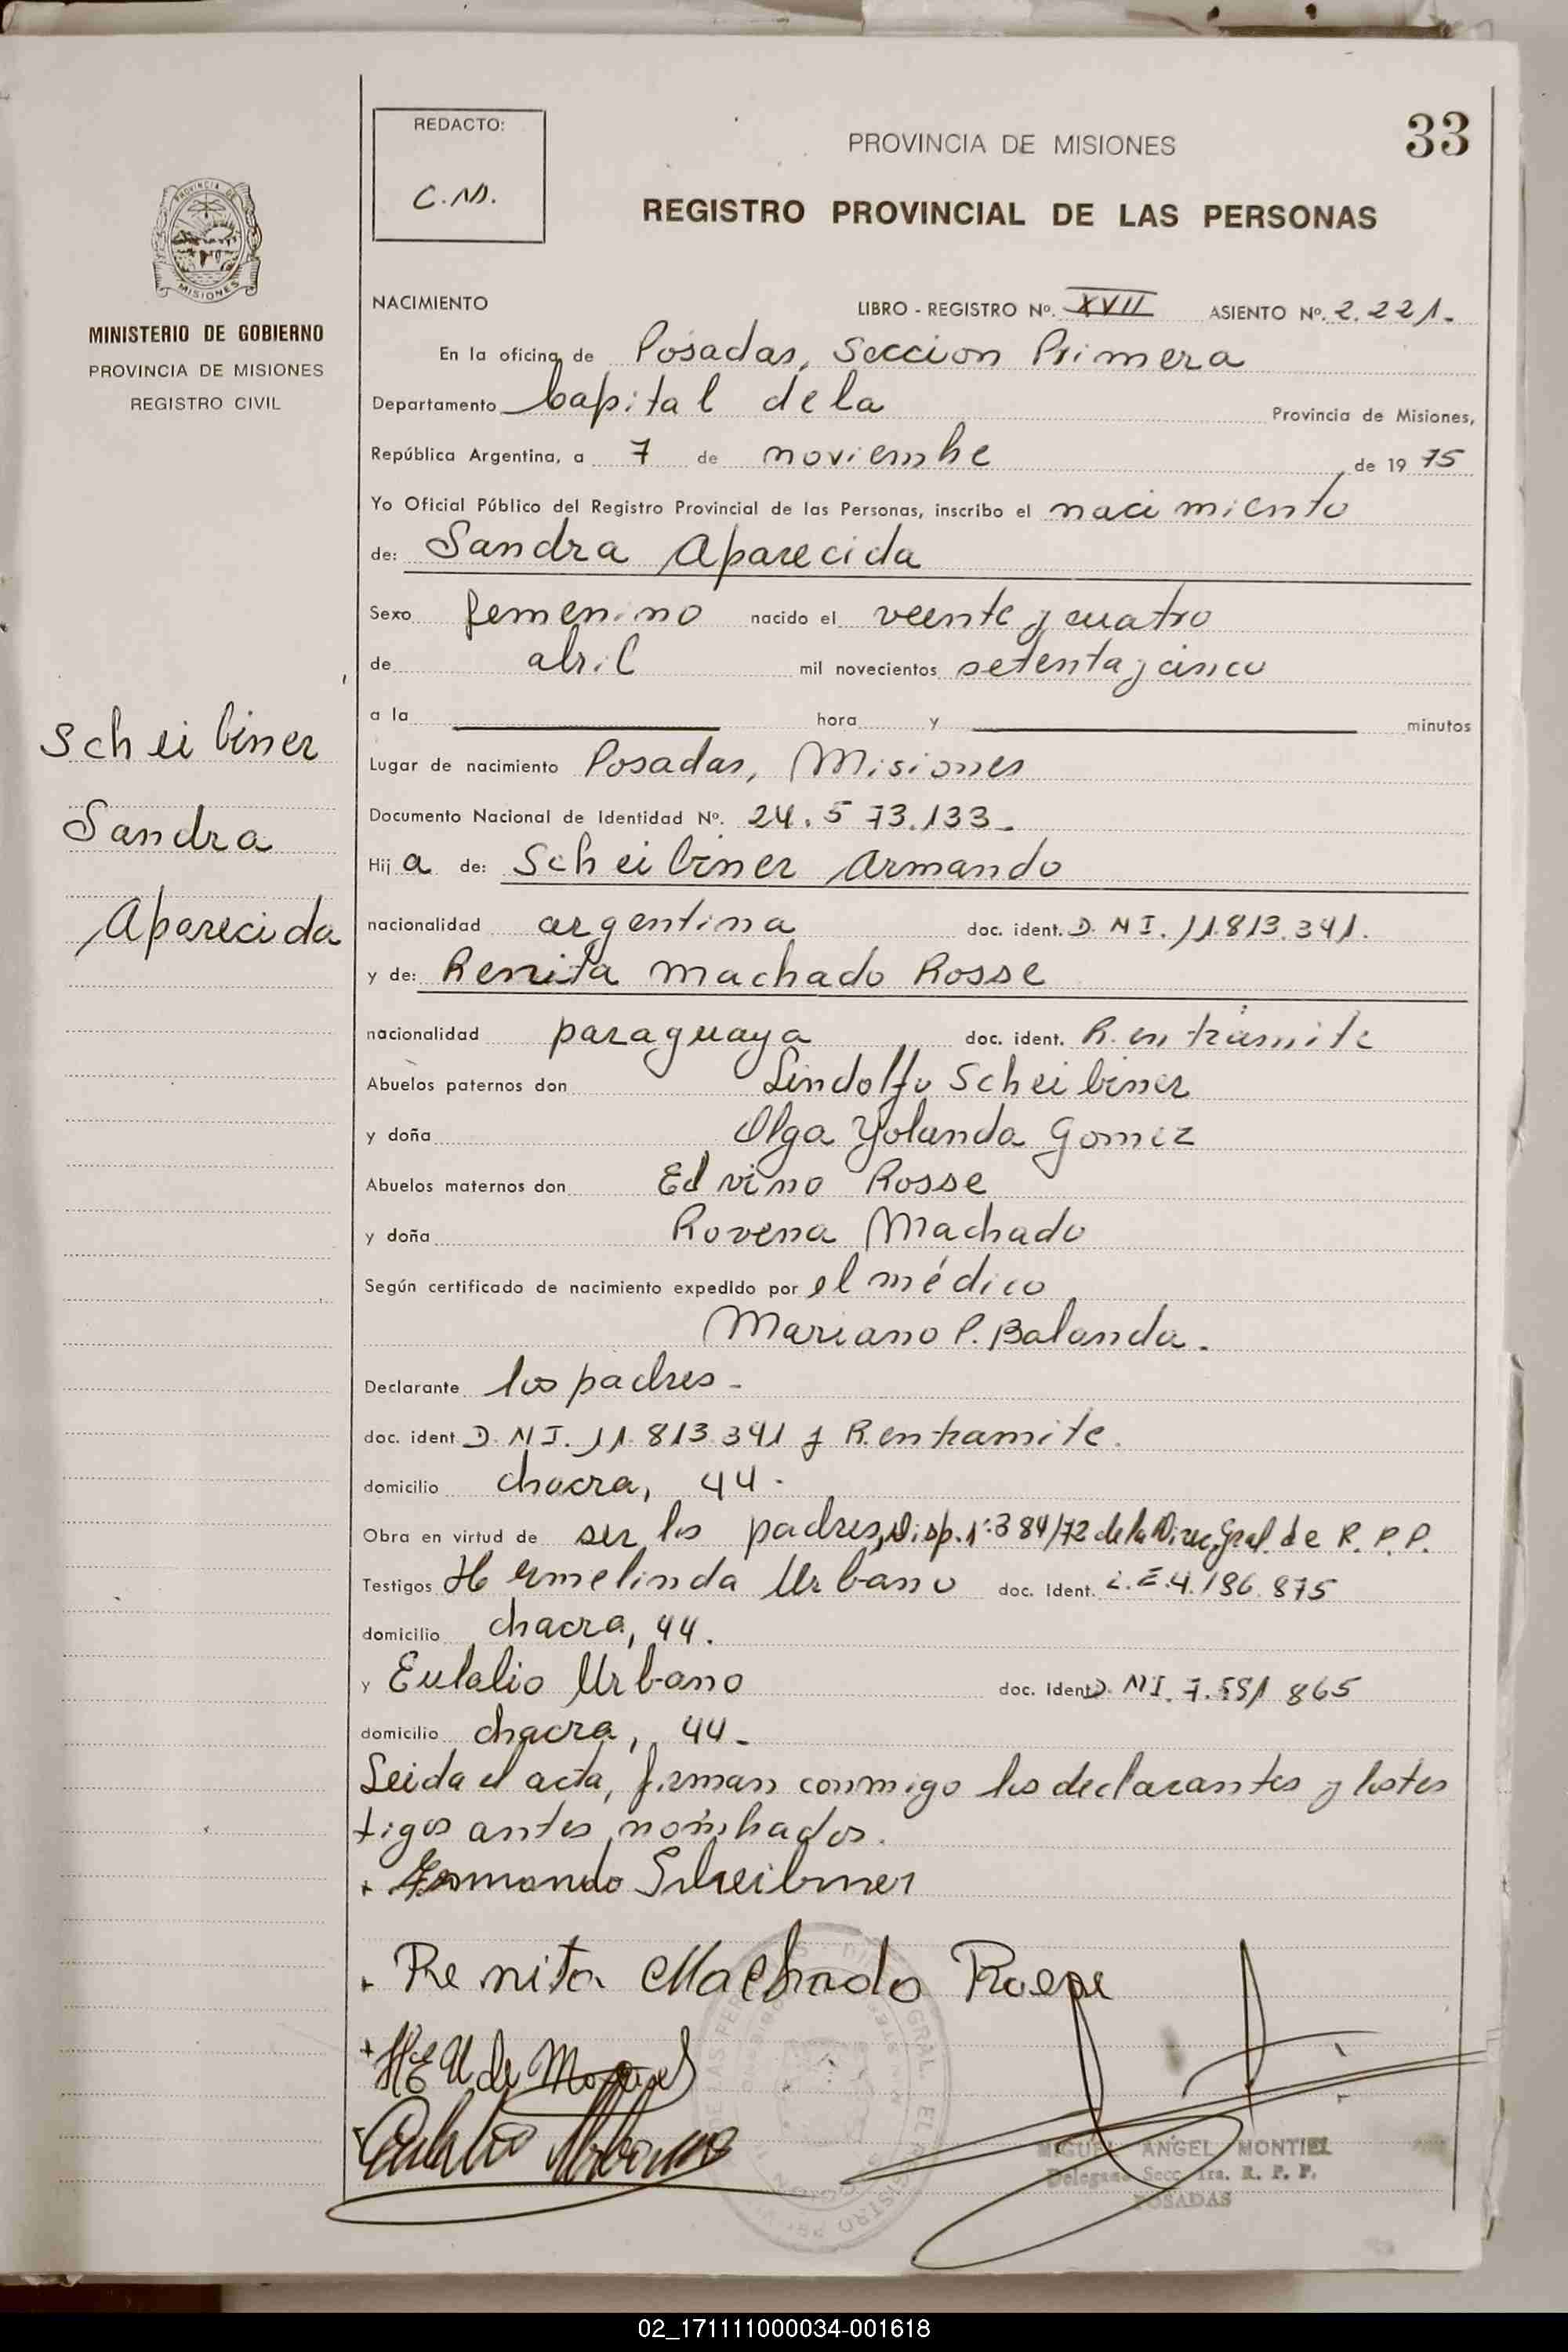 REDACTO:
C.M.
PROVINCIA DE MISIONES
33
REGISTRO PROVINCIAL DE LAS PERSONAS
PROVINCIA DE
MISIONES
MINISTERIO DE GOBIERNO
PROVINCIA DE MISIONES
REGISTRO CIVIL
NACIMIENTO LIBRO - REGISTRO Nº. XVII ASIENTO Nº. 2.221.
En la oficina de Posadas, Seccion Primera
Departamento Capital de la Provincia de Misiones,
República Argentina, a 7 de noviembre de 19 75
Yo Oficial Público del Registro Provincial de las Personas, inscribo el nacimiento
de: Sandra Aparecida
Sexo femenino nacido el veinte y cuatro
de abril mil novecientos setenta y cinco
a la hora y minutos
Scheibiner
Sandra
Aparecida
Lugar de nacimiento Posadas, Misiones
Documento Nacional de Identidad Nº. 24.573.133.
Hij a de: Scheibiner Armando
nacionalidad argentina doc. ident. D.N.I. 11.813.341.
y de: Renita Machado Rosse
nacionalidad paraguaya doc. ident. R. en trámite
Abuelos paternos don Lindolfo Scheibiner
y doña Olga Yolanda Gomez
Abuelos maternos don Edvino Rosse
y doña Rovena Machado
Según certificado de nacimiento expedido por el médico
Mariano P. Balanda.
Declarante los padres -
doc. ident. D.N.I. 11.813.341 y R. en tramite.
domicilio chacra, 44.
Obra en virtud de ser los padres, Disp. nº 384/72 de la Direc. Gral. de R. P. P.
Testigos Hermelinda Urbano doc. Ident. L.E. 4.186.875
domicilio chacra, 44.
y Eulalio Urbano doc. Ident. D.N.I. 7.551 865
domicilio chacra, 44-
Leida el acta, firman conmigo los declarantes y los tes
tigos antes nombrados.
+ Armando Scheibiner
+ Renita Machado Roese
+ H E U de
Eulalio Urbano
MIGUEL ANGEL MONTIEL
Delegado Secc. 1ra. R. P. P.
POSADAS
02_171111000034-001618